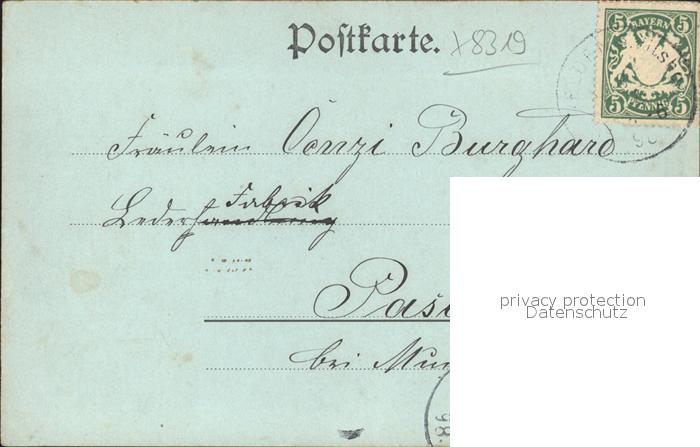 Postkarte.
x8319
5 BAYERN 5
5 PFENNIG 5
Fräulein Cenzi Burghard
Fabrik
Lederhandlung
Pasi
bei Mün
98
privacy protection
Datenschutz